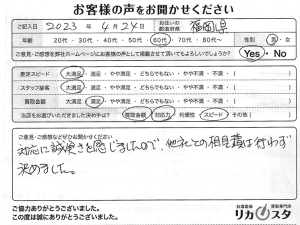 お客様の声をお聞かせください
ご記入日 2023年4月24日 お住いの都道府県 福岡県
年齢 20代・30代・40代・50代・60代・70代・80代~ 性別 男・女
ご意見・ご感想を弊社ホームページにお客様の声として掲載させて頂いてもよろしいでしょうか? Yes・No
査定スピード 大満足・満足・やや満足・どちらでもない・やや不満・不満・( )
スタッフ接客 大満足・満足・やや満足・どちらでもない・やや不満・不満・( )
買取金額 大満足・満足・やや満足・どちらでもない・やや不満・不満・( )
当店をお選びいただきました決め手は? 買取金額・対応力・利便性・スピード・その他( )
ご意見・ご感想などぜひお聞かせください。
対応に誠実さを感じましたので、他社との相見積は行わず
決めました。
ご協力ありがとうございました。
この度は誠にありがとうございました。
お酒買取 買取専門店
リカスタ